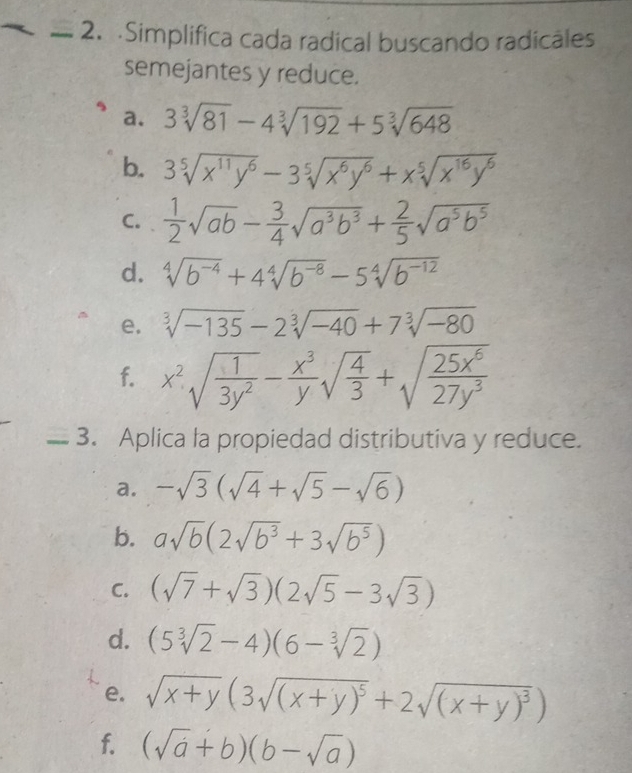 2. Simplifica cada radical buscando radicales
semejantes y reduce.
a. 3∛81 − 4∛192 + 5∛648
b. 3⁵√(x¹¹y⁶) − 3⁵√(x⁶y⁶) + x⁵√(x¹⁶y⁶)
c. 1/2 √(ab) − 3/4 √(a³b³) + 2/5 √(a⁵b⁵)
d. ⁴√(b⁻⁴) + 4⁴√(b⁻⁸) − 5⁴√(b⁻¹²)
e. ∛(−135) − 2∛(−40) + 7∛(−80)
f. x² √(1/(3y²)) − x³/y √(4/3) + √(25x⁶/(27y³))
3. Aplica la propiedad distributiva y reduce.
a. −√3 (√4 + √5 − √6)
b. a√b(2√(b³) + 3√(b⁵))
c. (√7 + √3)(2√5 − 3√3)
d. (5∛2 − 4)(6 − ∛2)
e. √(x+y) (3√((x+y)⁵) + 2√((x+y)³))
f. (√a + b)(b − √a)